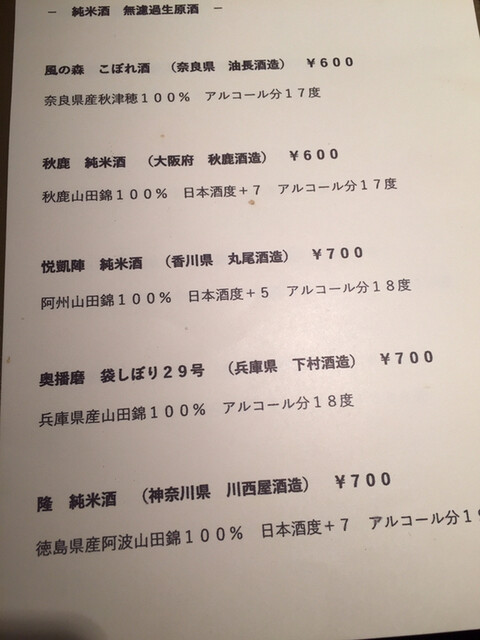 － 純米酒 無濾過生原酒 －
風の森 こぼれ酒 （奈良県 油長酒造） ￥６００
奈良県産秋津穂１００％ アルコール分１７度
秋鹿 純米酒 （大阪府 秋鹿酒造） ￥６００
秋鹿山田錦１００％ 日本酒度＋７ アルコール分１７度
悦凱陣 純米酒 （香川県 丸尾酒造） ￥７００
阿州山田錦１００％ 日本酒度＋５ アルコール分１８度
奥播磨 袋しぼり２９号 （兵庫県 下村酒造） ￥７００
兵庫県産山田錦１００％ アルコール分１８度
隆 純米酒 （神奈川県 川西屋酒造） ￥７００
徳島県産阿波山田錦１００％ 日本酒度＋７ アルコール分１